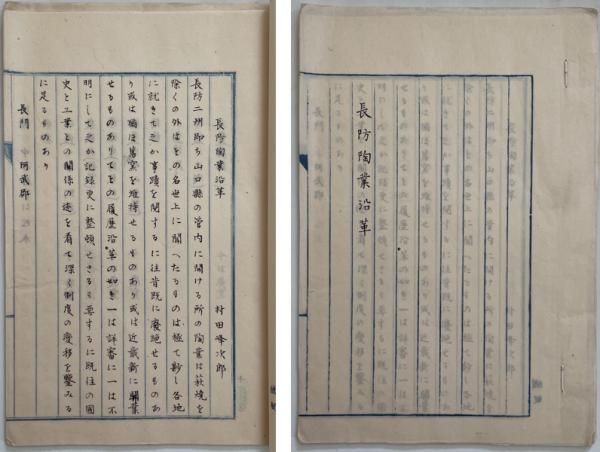 長防陶業沿革
村田峰次郎
長防二州即ち山口縣の管内に開ける所の陶業は萩焼を
除くの外はその名世上に聞へたるものは極て尠し各地
に就きて之か事蹟を関するに往昔既に廃絶せるものあ
り或は猶ほ舊窯を維持せるものあり或は近歳新に開業
せるものありてその履歴沿革の如き一は詳審に一は不
明にして之か記録史に整頓せさるも要するに既往の国
史と工業との関係の迹を看て深く制度の変移を鑒みる
に足るものあり
長門
阿武郡
長防陶業沿革